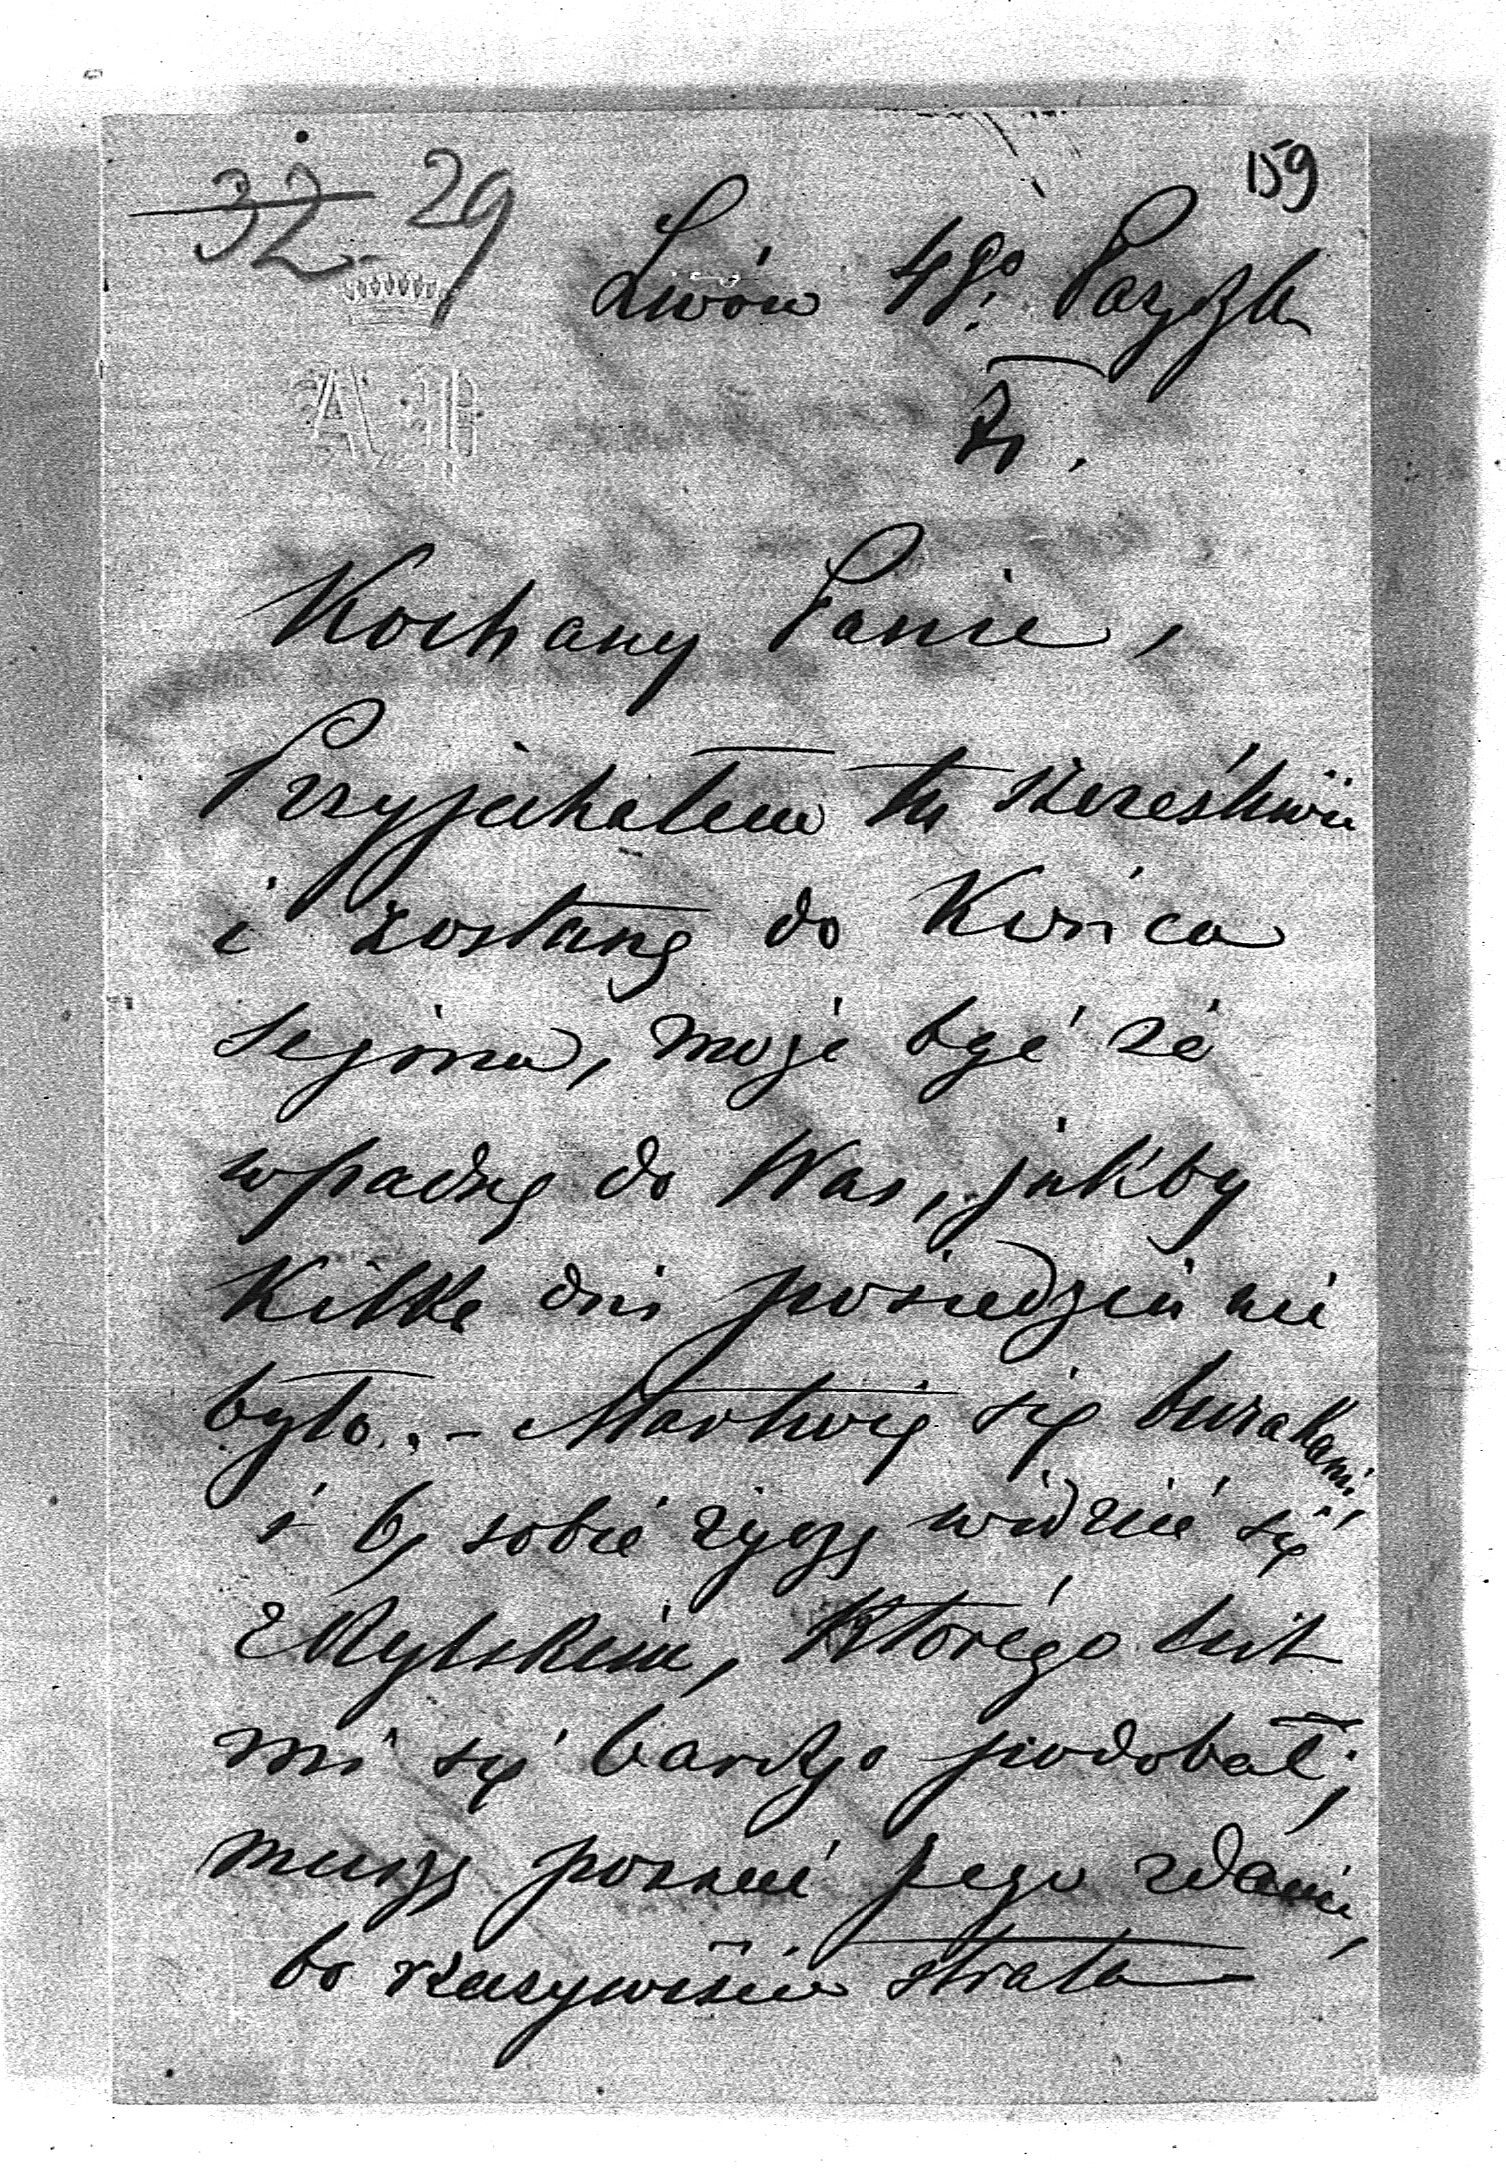 159
32 29
Lwów 4go Paźdz
71.
A P
Kochany Panie,
Przyjechałem tu szczęśliwie
i zostanę do Końca
Sejmu, może być że
wpadnę do Was, jakby
Kilka dni posiedzeń nie
było. - Martwię się burakami,
i b. sobie życzę widzieć się
z Rylskim, Którego list
mi się bardzo podobał;
muszę poznać jego zdanie,
bo rzeczywiście strata